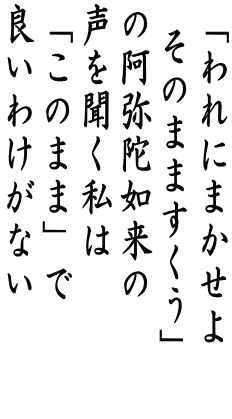 「われにまかせよ
そのまますくう」
の阿弥陀如来の
声を聞く私は
「このまま」で
良いわけがない